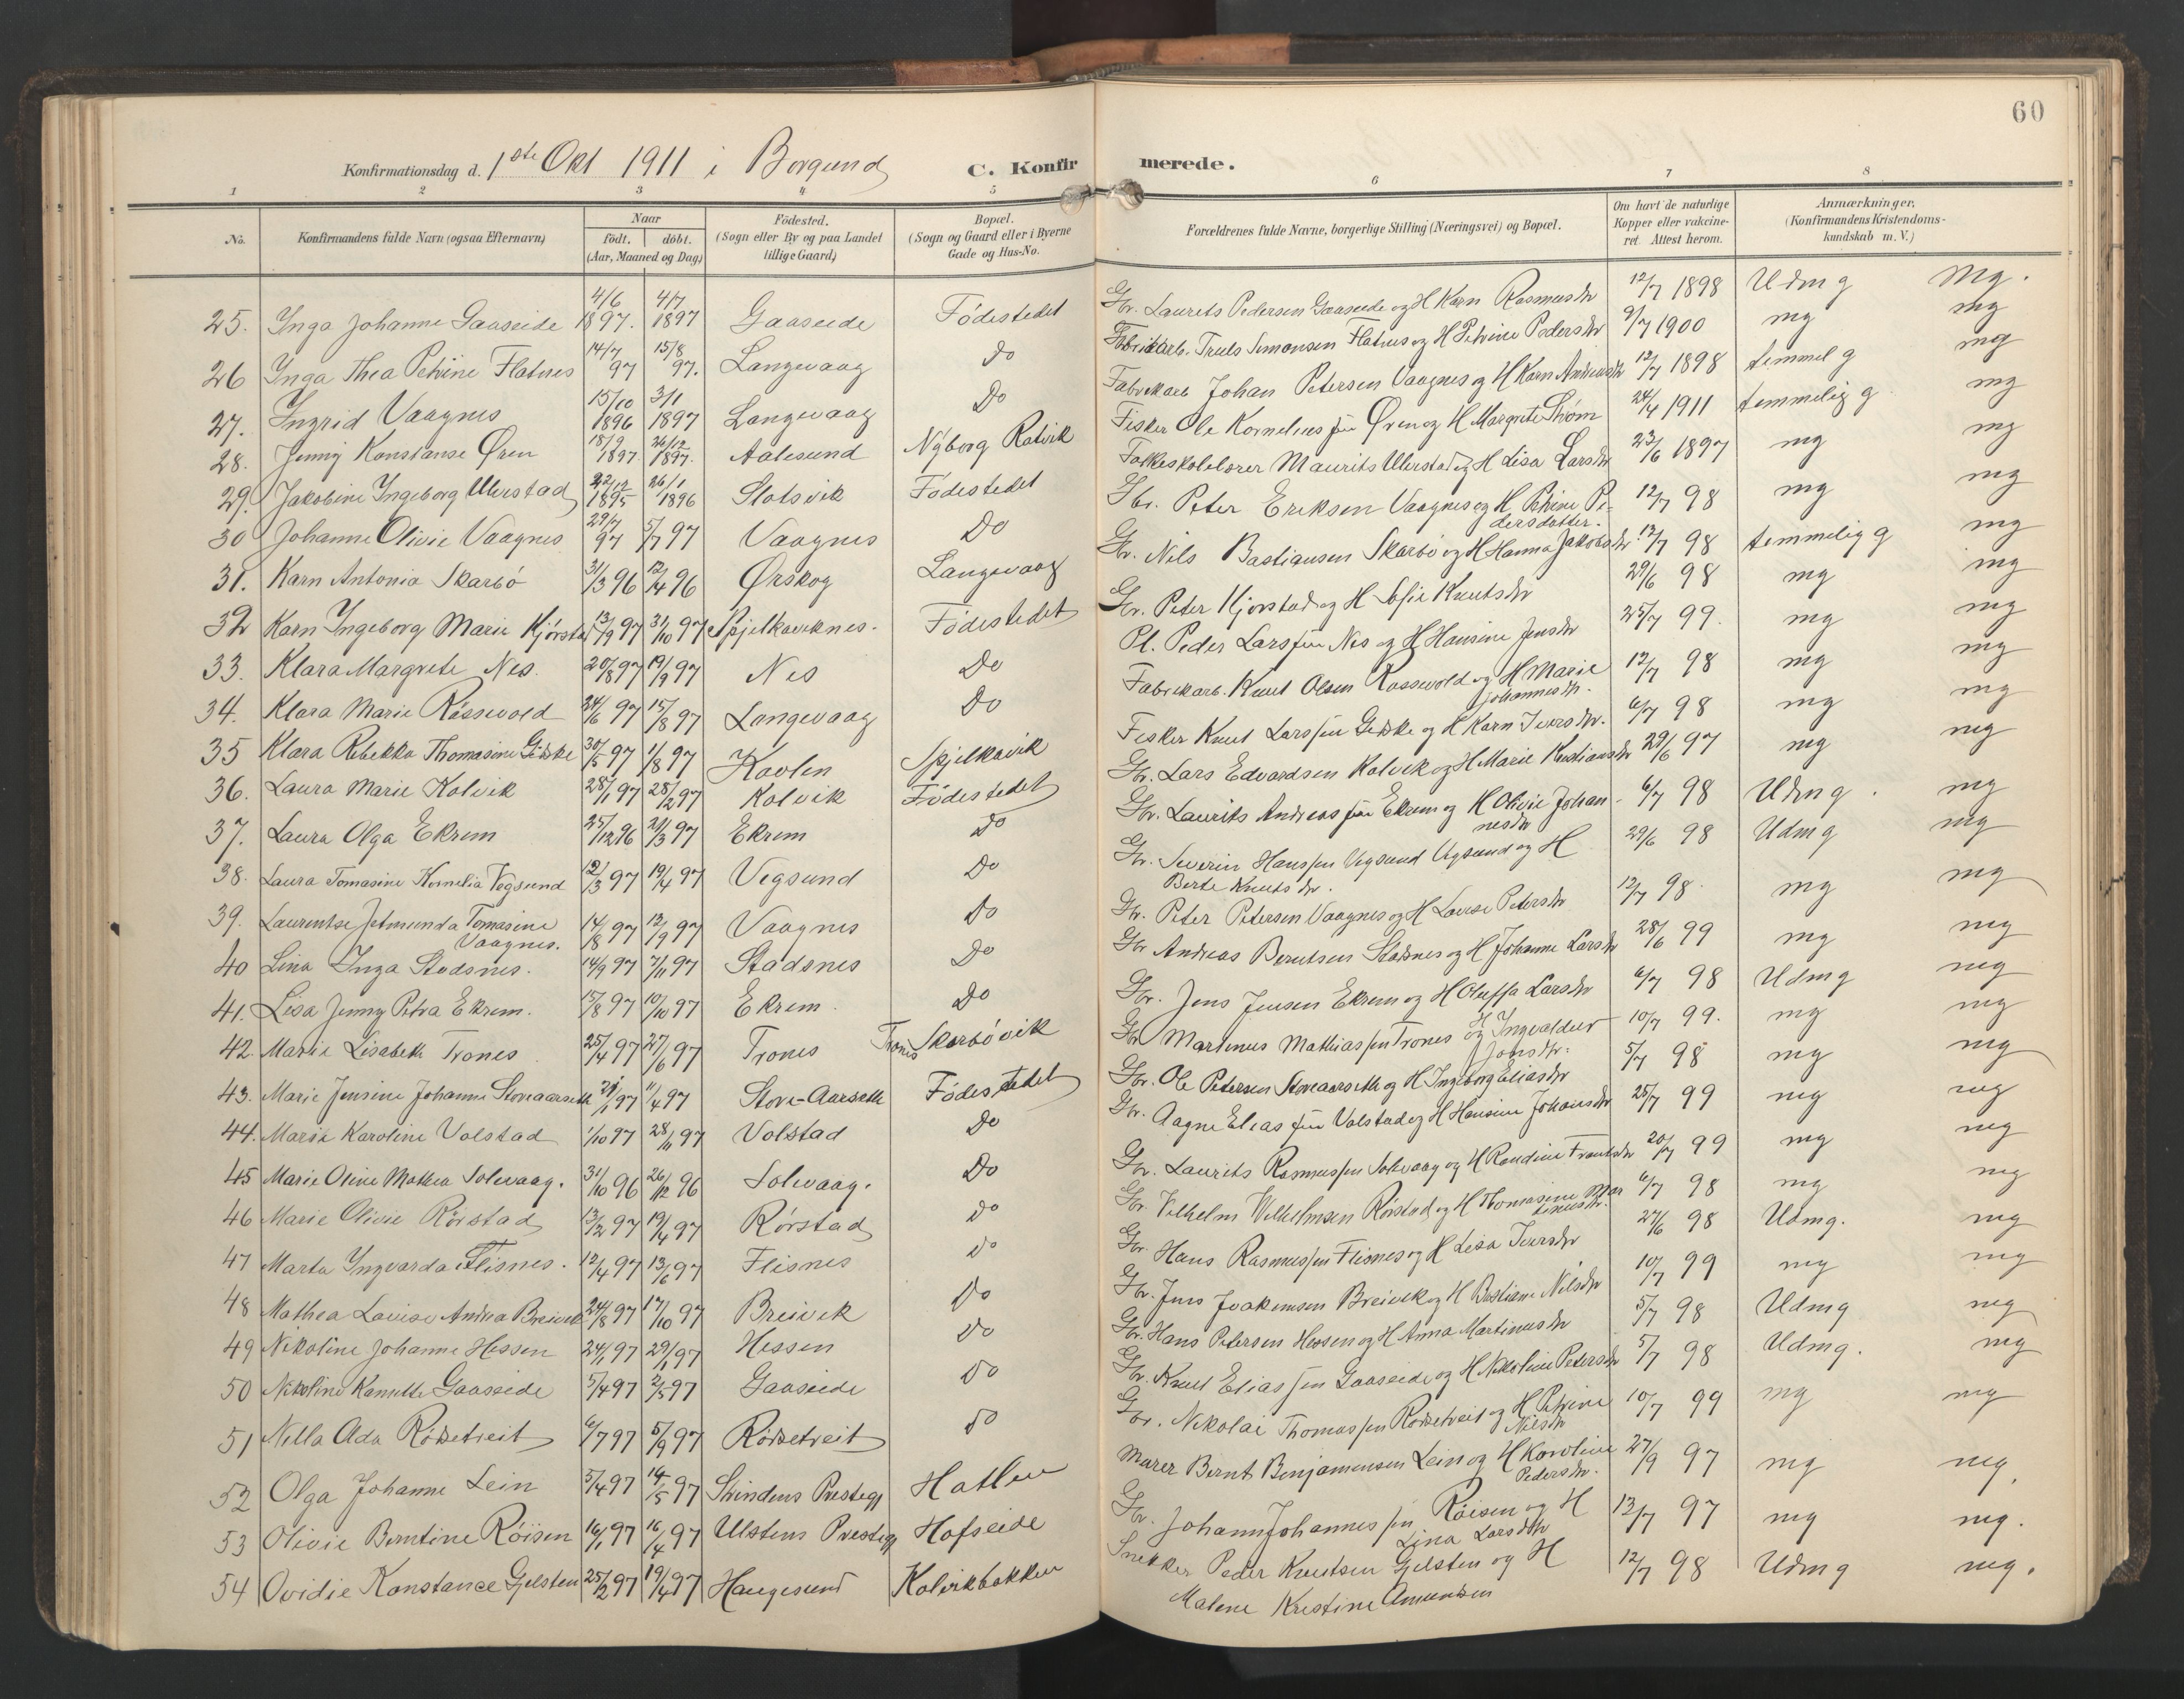 60
Konfirmationsdag d. 1ste Okt 1911 i Borgund C. Konfirmerede.
1 2 3 4 5 6 7 8
No. Konfirmandens fulde Navn (ogsaa Efternavn) Naar födt. döbt. (Aar, Maaned og Dag) Födested. (Sogn eller By og paa Landet tillige Gaard) Bopæl. (Sogn og Gaard eller i Byerne Gade og Hus-No. Forældrenes fulde Navne, borgerlige Stilling (Næringsvei) og Bopæl. Om havt de naturlige Kopper eller vakcineret. Attest herom. Anmærkninger, (Konfirmandens Kristendomskundskab m. V.)
25. Inga Johanne Gaaseide 4/6 1897. 4/7 1897 Gaaseide Födestedet Gbr. Laurits Pedersen Gaaseide og H Karn Rasmusdtr 12/7 1898 Udmg Mg.
26 Inga Thea Petrine Flatnes 14/7 97 15/8 97. Langevaag Do Fabrikarb. Truls Simonsen Flatnes og H Petrine Pedersdtr 9/7 1900 mg mg
27. Ingrid Vaagnes 15/10 1896 3/1 1897 Langevaag Do Fabrikarb Johan Petersen Vaagnes og H Karn Andreasdtr 12/7 1898 temmel g mg
28. Jenny Konstanse Øren 18/9 1897. 26/12 1897. Aalesund Nyborg Ratvik Fisker Ole Kornelius sen Øren og H Margrete Thom 24/4 1911 temmelig g mg
29. Jakobine Ingeborg Ulerstad 22/12 1895 26/1 1896 Slotsvik Födestedet Folkeskolelærer Maurits Ulerstad og H Lisa Larsdtr 23/6 1897 mg mg
30 Johanne Olivie Vaagnes 29/4 97 5/7 97 Vaagnes Do Gbr. Peter Eriksen Vaagnes og H Petrine Pedersdatter. 12/7 98 mg mg
31. Karn Antonia Skarbö 31/3 96 12/4 96 Ørskog Langevaag Gbr. Nils Bastiansen Skarbö og H Hanna Jakobsdtr 12/7 98 temmelig g mg
32 Karn Ingeborg Marie Kjörstad 13/9 97 31/10 97 Spjelkaviknes. Födestedet Gbr. Peter Kjörstad og H Sofie Knutsdtr 29/6 98 mg mg
33. Klara Margrete Nes. 20/8 97 19/9 97 Nes Do Pl. Peder Larssen Nes og H Hansine Jensdtr 25/7 99. mg mg
34. Klara Marie Rössevold 24/6 97 15/8 97 Langevaag Do Fabrikarb. Knut Olsen Rossevold og H Marie Johannesdtr. 12/7 98 mg mg
35 Klara Rebekka Thomasine Giske 30/5 97 1/8 97 Kavlen Spjelkavik Fisker Knut Larssen Giske og H Karn Iversdtr. 6/7 98 mg mg
36. Laura Marie Kolvik 28/1 97 28/2 97 Kolvik Födestedet Gbr. Lars Edvardsen Kolvik og H Marie Kristiansdtr 29/6 97 mg mg
37. Laura Olga Ekrem 25/12 96 21/3 97 Ekrem Do Gbr. Laurits Andreassen Ekrem og H Olivie Johannesdtr 6/7 98 Udmg. mg
38. Laura Tomasine Kornelia Vegsund 12/3 97 19/4 97 Vegsund Do Gbr. Severin Hanssen Vegsund Vegsund og H Berte Knutsdtr. 29/6 98 Udmg mg
39. Laurentse Jetmunda Tomasine Vaagnes. 14/8 97 12/9 97 Vaagnes Do Gbr. Peter Petersen Vaagnes og H Lovise Petersdtr 12/7 98. mg mg
40 Lina Inga Stadsnes. 14/9 97 7/11 97 Stadsnes Do Gbr Andreas Berntsen Stadsnes og H Johanne Larsdtr 28/6 99 mg mg
41. Lisa Jenny Petra Ekrem. 15/8 97 10/10 97 Ekrem Do Gbr. Jens Jensen Ekrem og H Oluffa Larsdtr 6/7 98 Udmg mg
42. Marie Lisabeth Trones 25/4 97 27/6 97 Trones Trones Skarbövik Gbr Martinus Mathiassen Trones og H Ingvaldur Jonsdtr. 10/7 99. mg mg
43. Marie Jensine Johanne Storeaarseth 21/1 97 11/4 97 Store-Aarseth Födestedet Gbr. Ole Petersen Storeaarseth og H Ingeborg Eliasdtr 5/7 98 mg mg
44. Marie Karoline Volstad 1/10 97 28/11 97 Volstad Do Gbr. Aagne Eliassen Volstad og H Hansine Johansdtr 25/7 99 mg mg
45 Marie Oline Mathea Solevaag. 31/10 96 26/12 96 Solevaag. Do Gbr. Laurits Rasmussen Solevaag og H Randine Frantsdtr 20/7 99 mg mg
46 Marie Olivie Rörstad 13/2 97 19/4 97 Rörstad Do Gbr. Vilhelm Vilhelmsen Rörstad og H Thomasine Martinusdtr. 6/7 98 mg mg
47 Marta Ingvarda Flisnes. 12/4 97 13/6 97 Flisnes Do Gbr. Hans Rasmussen Flisnes og H Lisa Iversdtr 27/6 98 Udmg. mg
48 Mathea Lovise Andrea Breivik 24/8 97 17/10 97 Breivik Do Gbr. Jens Joakimsen Breivik og H Bastiane Nilsdtr 10/7 99 mg mg
49 Nikoline Johanne Hessen 24/1 97 29/1 97 Hessen Do Gbr. Hans Petersen Hessen og H Anna Martinusdtr 5/7 98 Udmg mg
50 Nikoline Kanutte Gaaseide 5/4 97 2/5 97 Gaaseide Do Gbr. Knut Eliassen Gaaseide og H Nikoline Petersdtr 5/7 98 Udmg. mg
51 Nella Ada Rödsetreit 6/7 97 5/9 97 Rödsetreit Do Gbr. Nikolai Thomassen Rödsetreit og H Petrine Nilsdtr 10/7 99 mg mg
52 Olga Johanne Lein 5/4 97 14/5 97 Strindens Prestegj Hatlen Murer Bernt Benjaminsen Lein og H Karoline Pedersdtr. 27/9 97 mg mg.
53 Olivie Berntine Röisen 16/1 97 16/4 97 Ulstens Prestegj Hofseide Gbr. Johann Johannessen Röisen og H Lina Larsdtr 13/7 97 mg mg.
54 Ovidie Konstance Gjelsten 25/2 97 19/4 97 Haugesund Kolvikbakken Snekker Peder Knutsen Gjelsten og H Malene Kristine Amundsen 12/7 98 Udmg mg.